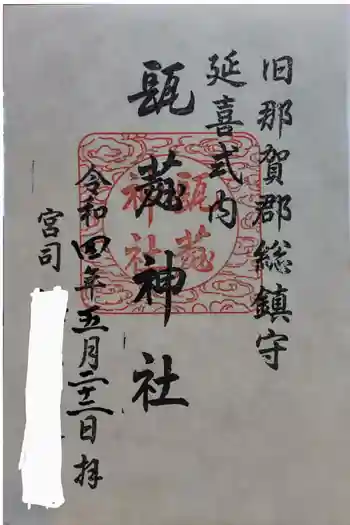 旧那賀郡総鎮守
延喜式内
瓺蕤神社
令和四年五月日拝
宮司
瓺蕤
神社